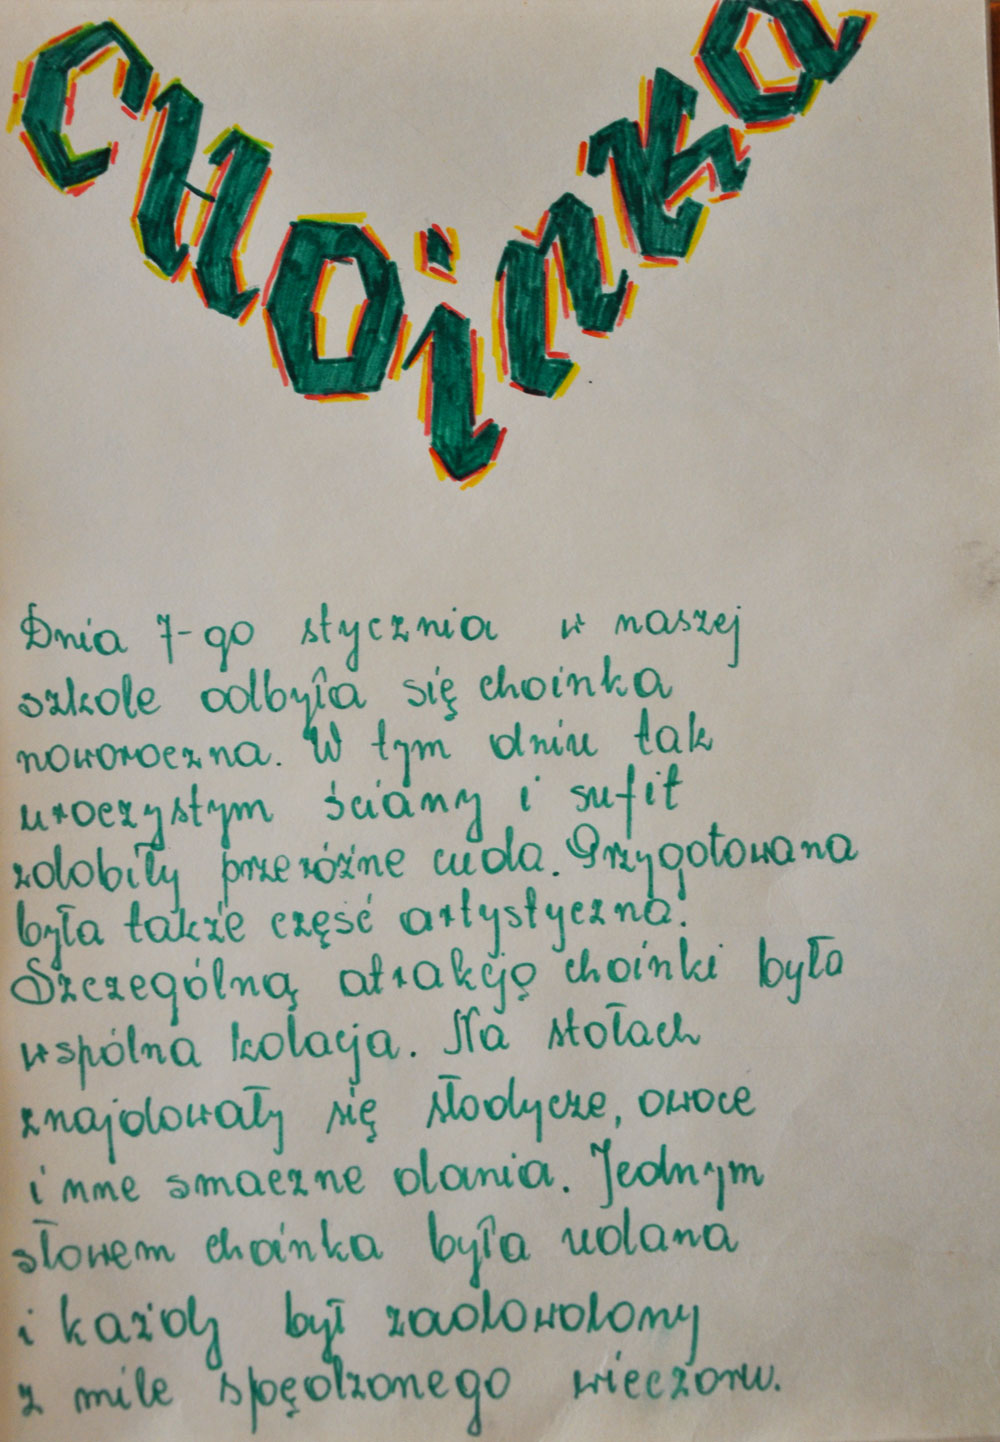 choinka
Dnia 7-go stycznia w naszej
szkole odbyła się choinka
noworoczna. W tym dniu tak
uroczystym ściany i sufit
zdobiły przeróżne cuda. Przygotowana
była także część artystyczna.
Szczególną atrakcję choinki była
wspólna kolacja. Na stołach
znajdowały się słodycze, owoce
i nne smaczne dania. Jednym
słowem choinka była udana
i każdy był zadowolony
z mile spędzonego wieczoru.